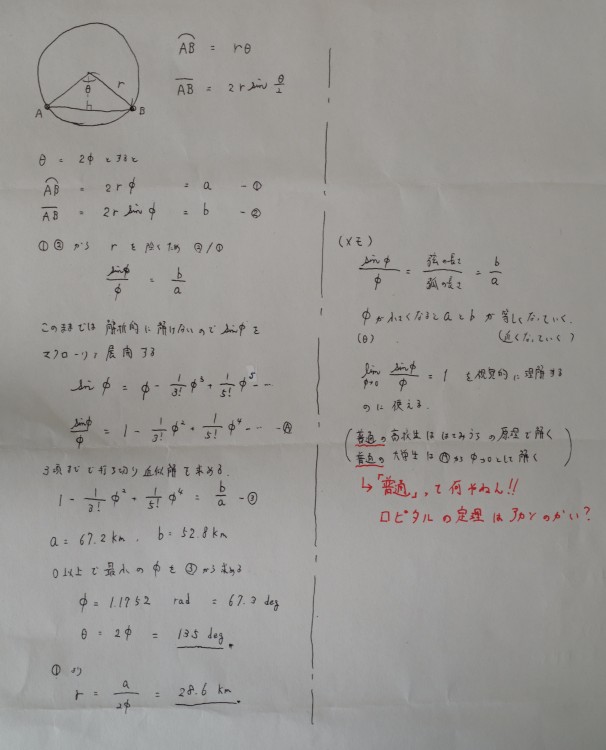 A
B
r
θ
h
⌒AB = rθ
‾AB = 2r sin θ/2
θ = 2φ とすると
⌒AB = 2rφ = a -①
‾AB = 2r sinφ = b -②
①②から r を除くため ②/①
sinφ/φ = b/a
このままでは解析的に解けないので sinφ を
マクローリン展開する
sinφ = φ - 1/3! φ³ + 1/5! φ⁵ - …
sinφ/φ = 1 - 1/3! φ² + 1/5! φ⁴ - … -Ⓐ
3項までで打ち切り近似解で求める.
1 - 1/3! φ² + 1/5! φ⁴ = b/a -③
a = 67.2 km , b = 52.8 km
0以上で最小の φ を③から求める.
φ = 1.1752 rad = 67.3 deg
θ = 2φ = 135 deg.
①より
r = a/2φ = 28.6 km.
(メモ)
sinφ/φ = 弦の長さ/弧の長さ = b/a
φが小さくなると a と b が等しくなっていく.
(θ) (近くなっていく)
lim φ→0 sinφ/φ = 1 を視覚的に理解する
のに使える.
(普通の高校生ははさみうちの原理で解く
普通の大学生はⒶから φ→0 として解く)
↳「普通」って何やねん!!
ロピタルの定理はアカンのかい?